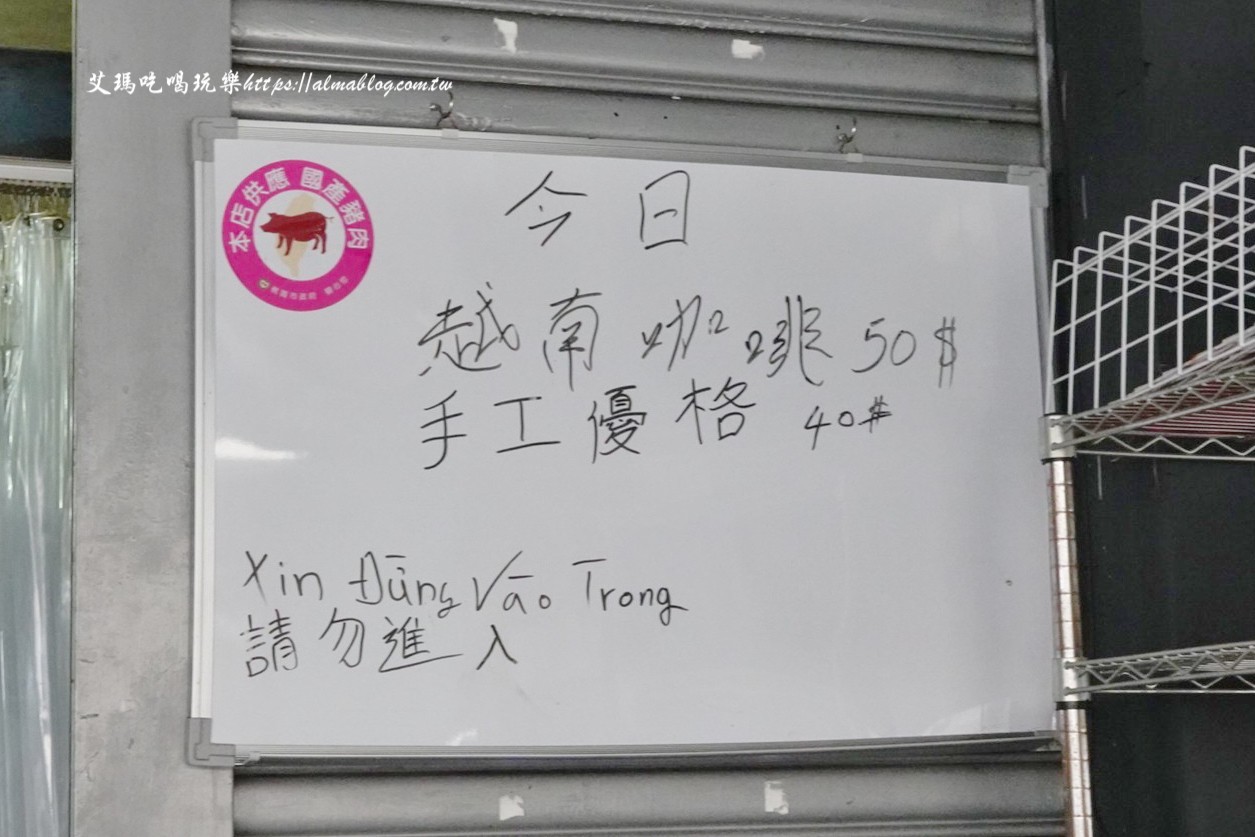 艾瑪吃喝玩樂https://almablog.com.tw
本店供應 國產豬肉
今日
越南咖啡 50$
手工優格 40$
Xin Đūng Vāo Trong
請勿進入